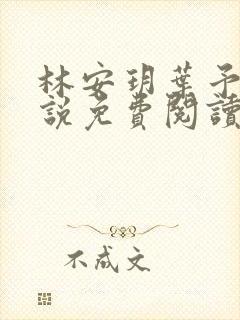 林安玥葉予
說免費閱讀
不成文